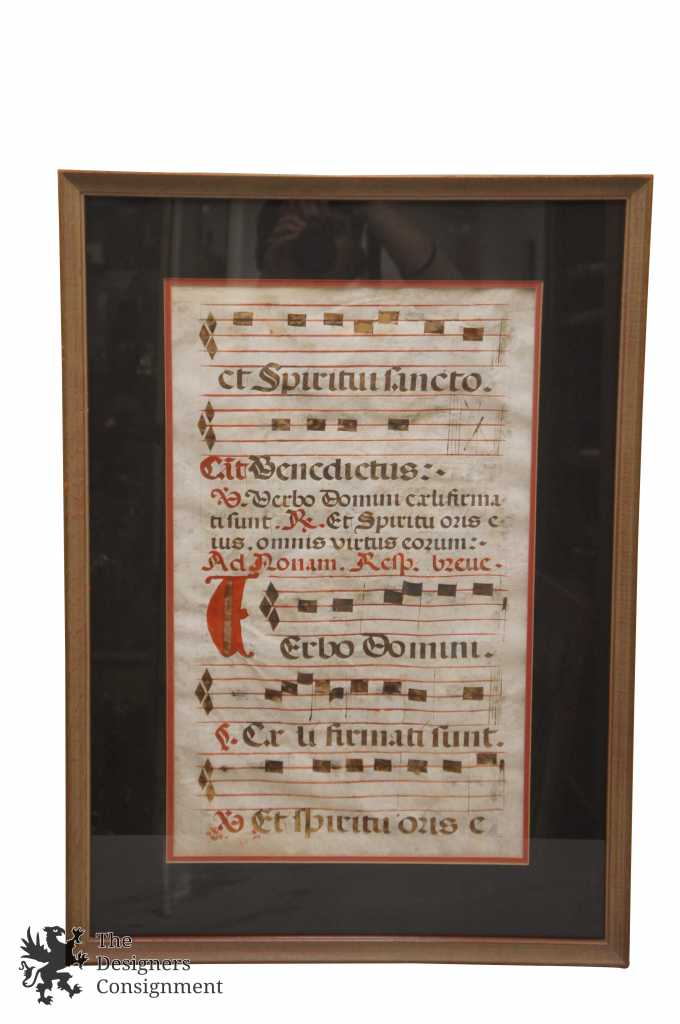 et Spiritui sancto.
Cãt Benedictus:~
℣. Verbo Domini cæli firma-
ti sunt. ℟. Et Spiritu oris e-
ius, omnis virtus eorum:~
Ad Nonam. Resp. breue.
VErbo Domini.
Cæ li firmati sunt.
℣ Et spiritu oris e
The
Designers
Consignment